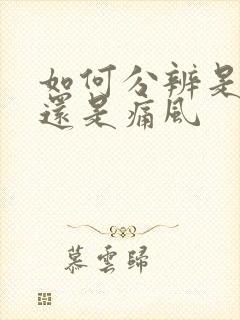 如何分辨是
還是痛風
慕雲歸